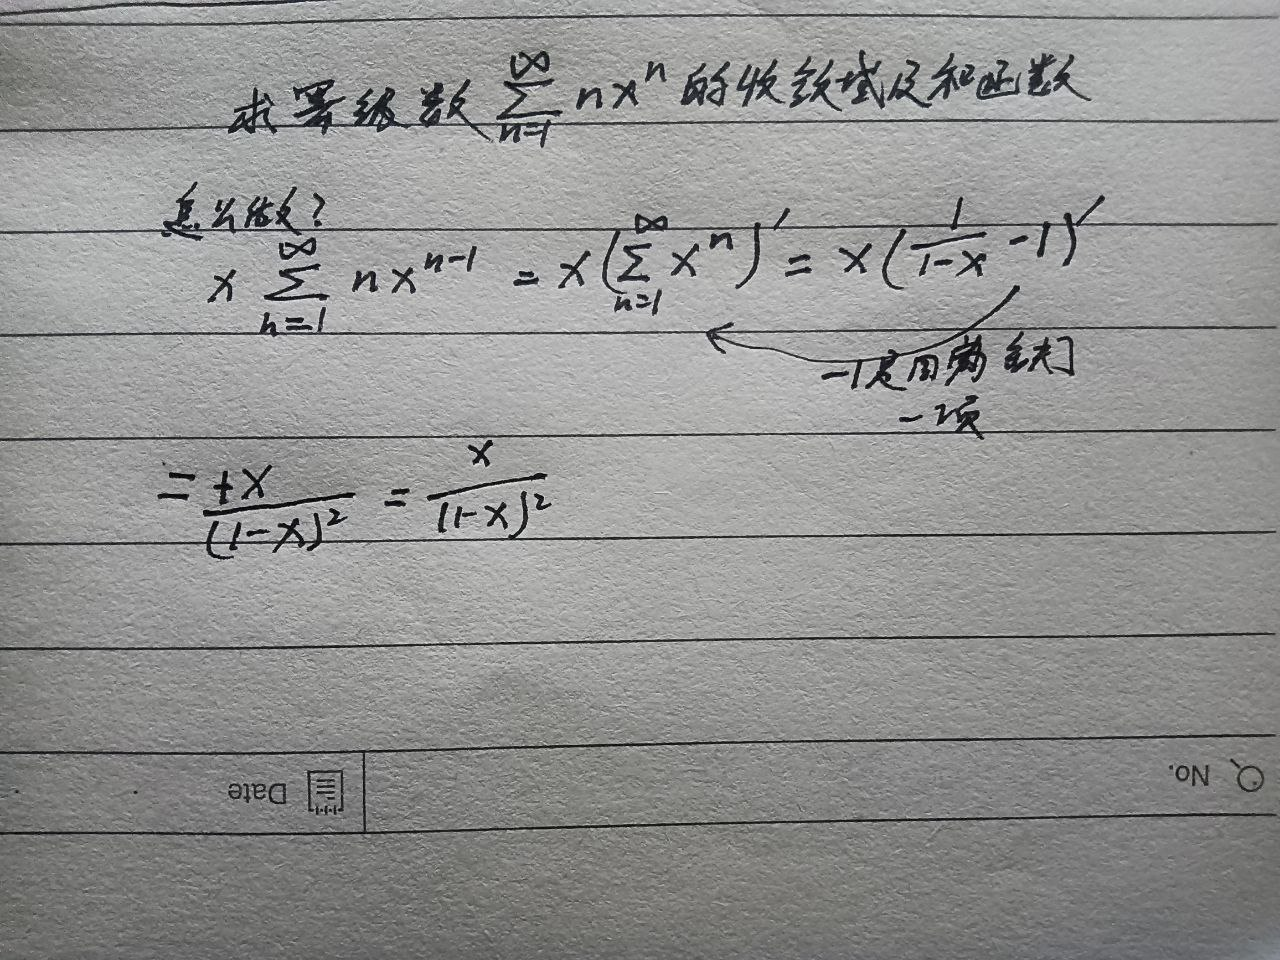 求幂级数 ∑_{n=1}^{∞} nx^n 的收敛域及和函数
怎么做?
x ∑_{n=1}^{∞} nx^{n-1} = x(∑_{n=1}^{∞} x^n)' = x(1/(1-x) -1)'
-1是因为
一项
= +x/(1-x)^2 = x/(1-x)^2
Date
No.